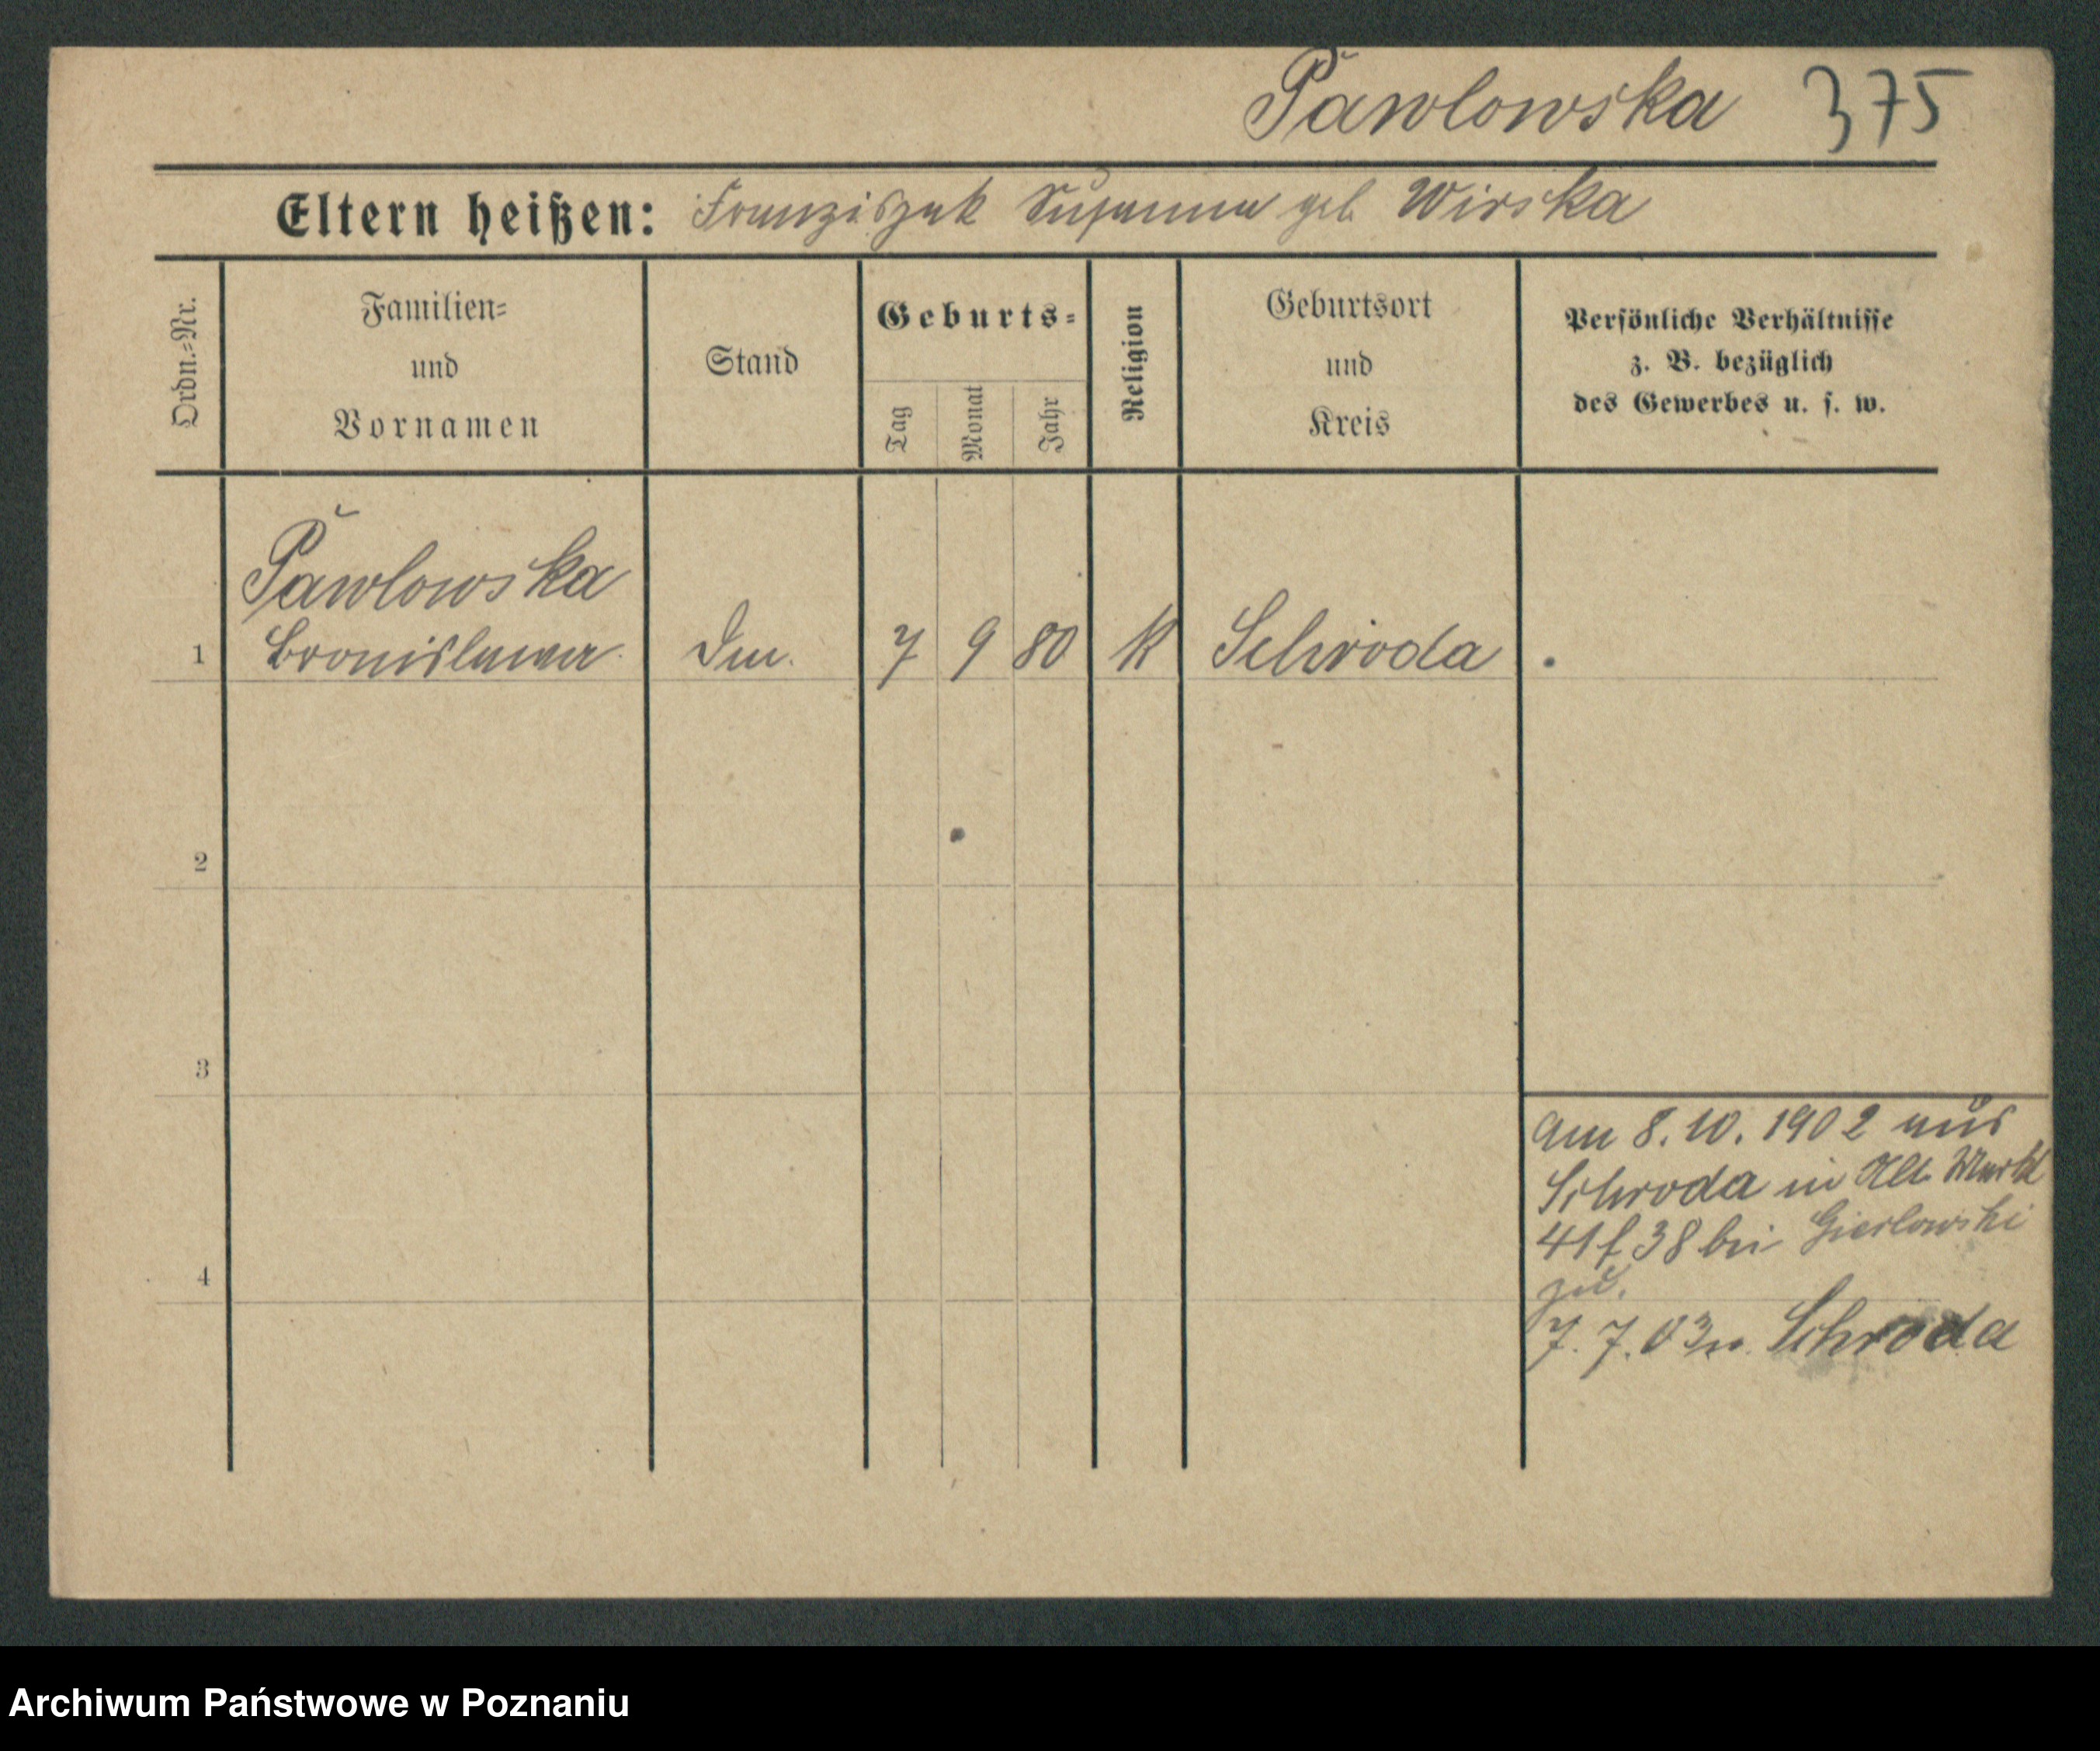 Pawlowska 375
Eltern heißen: Franziszek Susanna geb Wirska
Ordn.=Nr.
Familien=
und
Vornamen
Stand
Geburts=
Tag
Monat
Jahr
Religion
Geburtsort
und
Kreis
Persönliche Verhältnisse
z. B. bezüglich
des Gewerbes u. s. w.
Pawlowska
1 Bronislawa 7 9 80 K Schroda
2
3
4
am 8. 10. 1902 aus
Schroda in Alt. Markt
41 f 38 bei
zu.
7. 7. 03 n. Schroda
Archiwum Państwowe w Poznaniu